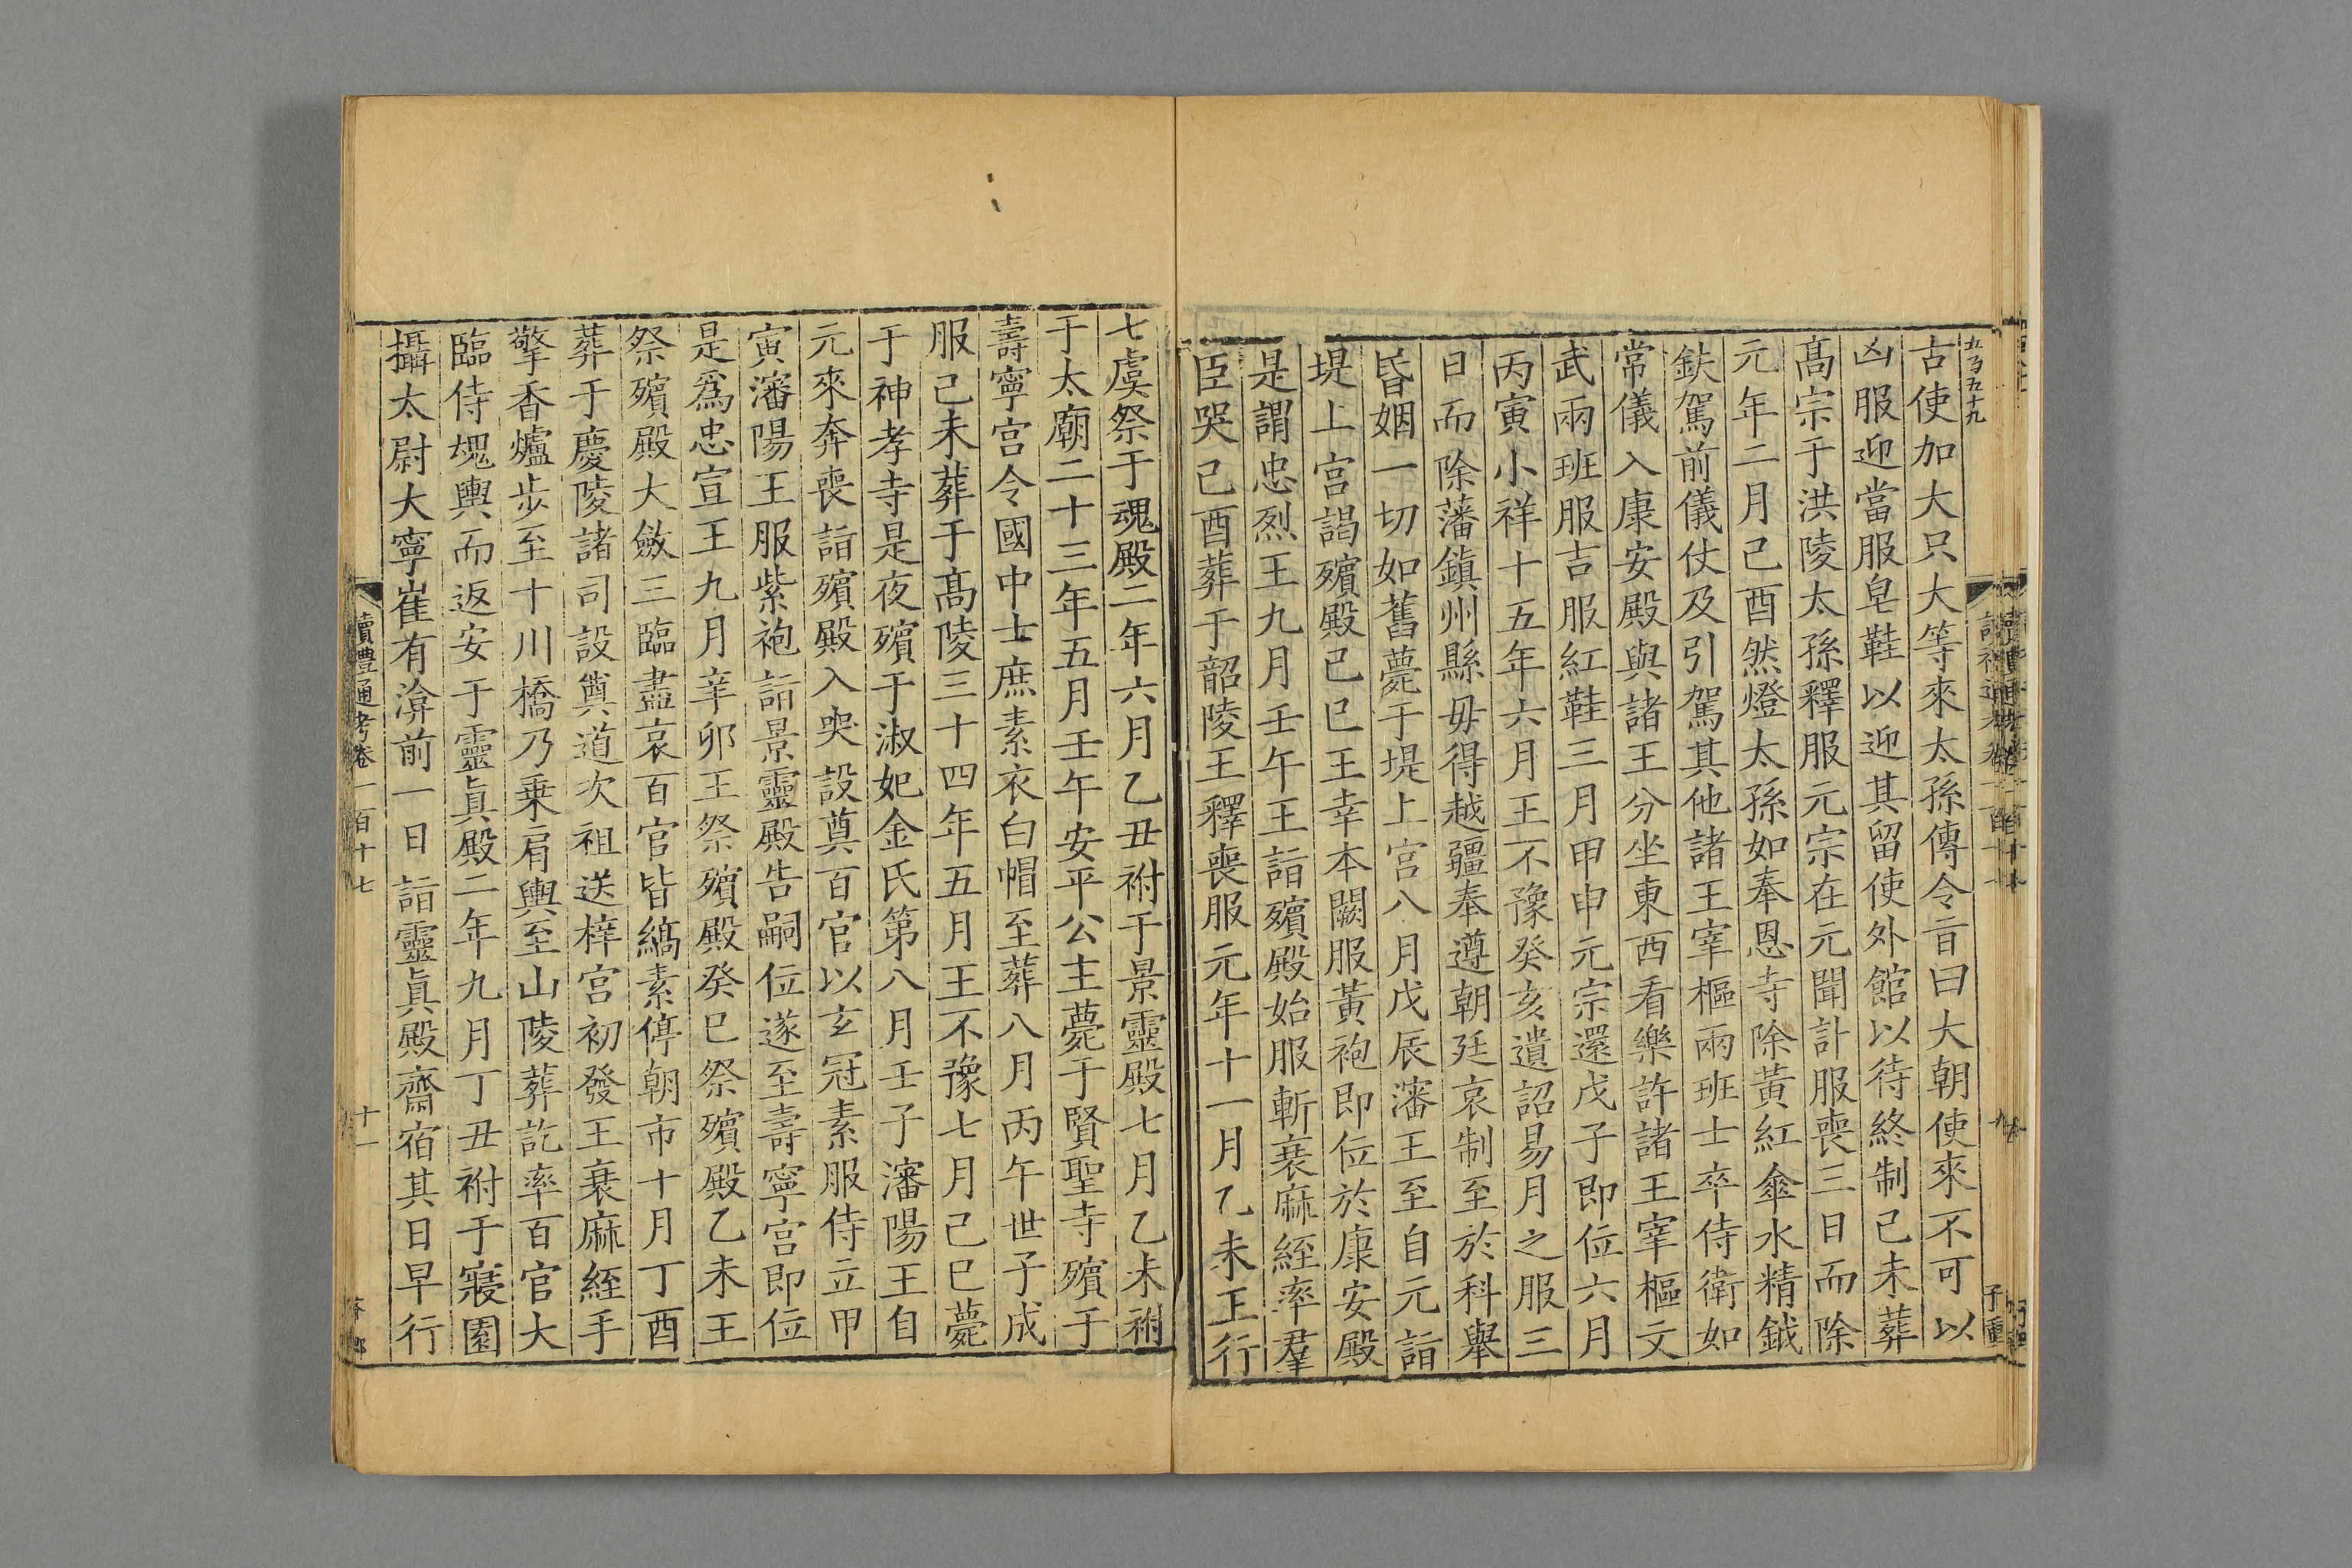 古使加大只大等來太孫傳令旨曰大朝使來不可以
凶服迎當服皂鞋以迎其留使外館以待終制己未葬
髙宗于洪陵太孫釋服元宗在元聞訃服喪三日而除
元年二月己酉然燈太孫如奉恩寺除黃紅傘水精鉞
鈇駕前儀仗及引駕其他諸王宰樞兩班士卒侍衛如
常儀入康安殿與諸王分坐東西看樂許諸王宰樞文
武兩班服吉服紅鞋三月甲申元宗還戊子即位六月
丙寅小祥十五年六月王不豫癸亥遺詔易月之服三
日而除藩鎮州縣毋得越疆奉遵朝廷哀制至於科舉
昏姻一切如舊薨于堤上宮八月戊辰瀋王至自元詣
堤上宮謁殯殿己巳王幸本闕服黃袍即位於康安殿
是謂忠烈王九月壬午王詣殯殿始服斬衰麻絰率羣
臣哭己酉葬于韶陵王釋喪服元年十一月乙未王行
七虞祭于魂殿二年六月乙丑祔于景靈殿七月乙未祔
于太廟二十三年五月壬午安平公主薨于賢聖寺殯于
壽寧宮令國中士庶素衣白帽至葬八月丙午世子成
服己未葬于髙陵三十四年五月王不豫七月己巳薨
于神孝寺是夜殯于淑妃金氏第八月壬子瀋陽王自
元來奔喪詣殯殿入哭設奠百官以玄冠素服侍立甲
寅瀋陽王服紫袍詣景靈殿告嗣位遂至壽寧宮即位
是爲忠宣王九月辛卯王祭殯殿癸巳祭殯殿乙未王
祭殯殿大斂三臨盡哀百官皆縞素停朝市十月丁酉
葬于慶陵諸司設奠道次祖送梓宮初發王衰麻絰手
擎香爐步至十川橋乃乗肩輿至山陵葬訖率百官大
臨侍魂輿而返安于靈眞殿二年九月丁丑祔于寢園
攝太尉大寧崔有渰前一日詣靈眞殿齋宿其日早行
讀禮通考卷一百十七
十一